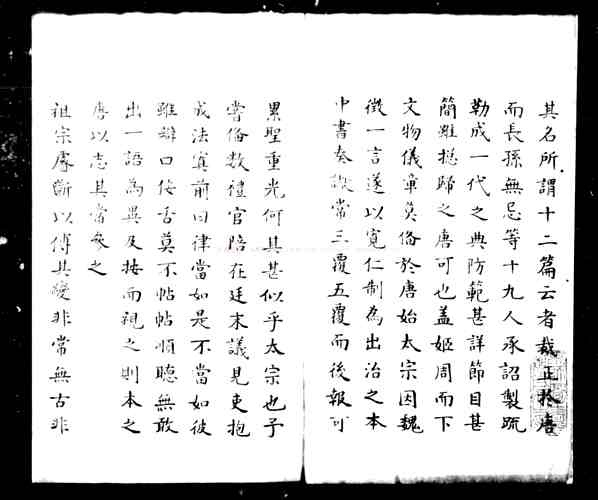 其名所謂十二篇云者裁正扵唐
而長孫無忌等十九人承詔製疏
勒成一代之典防範甚詳節目甚
簡雖揔歸之唐可也蓋姬周而下
文物儀章莫備於唐始太宗因魏
徵一言遂以寬仁制為出治之本
中書奏讞常三覆五覆而後報可
累聖重光何其甚似乎太宗也予
嘗備數禮官陪在廷末議見吏抱
成法寘前曰律當如是不當如彼
雖辯口佞舌莫不帖帖順聽無敢
出一語為異及按而視之則本之
唐以志其當參之
祖宗睿斷以傅其變非常無古非